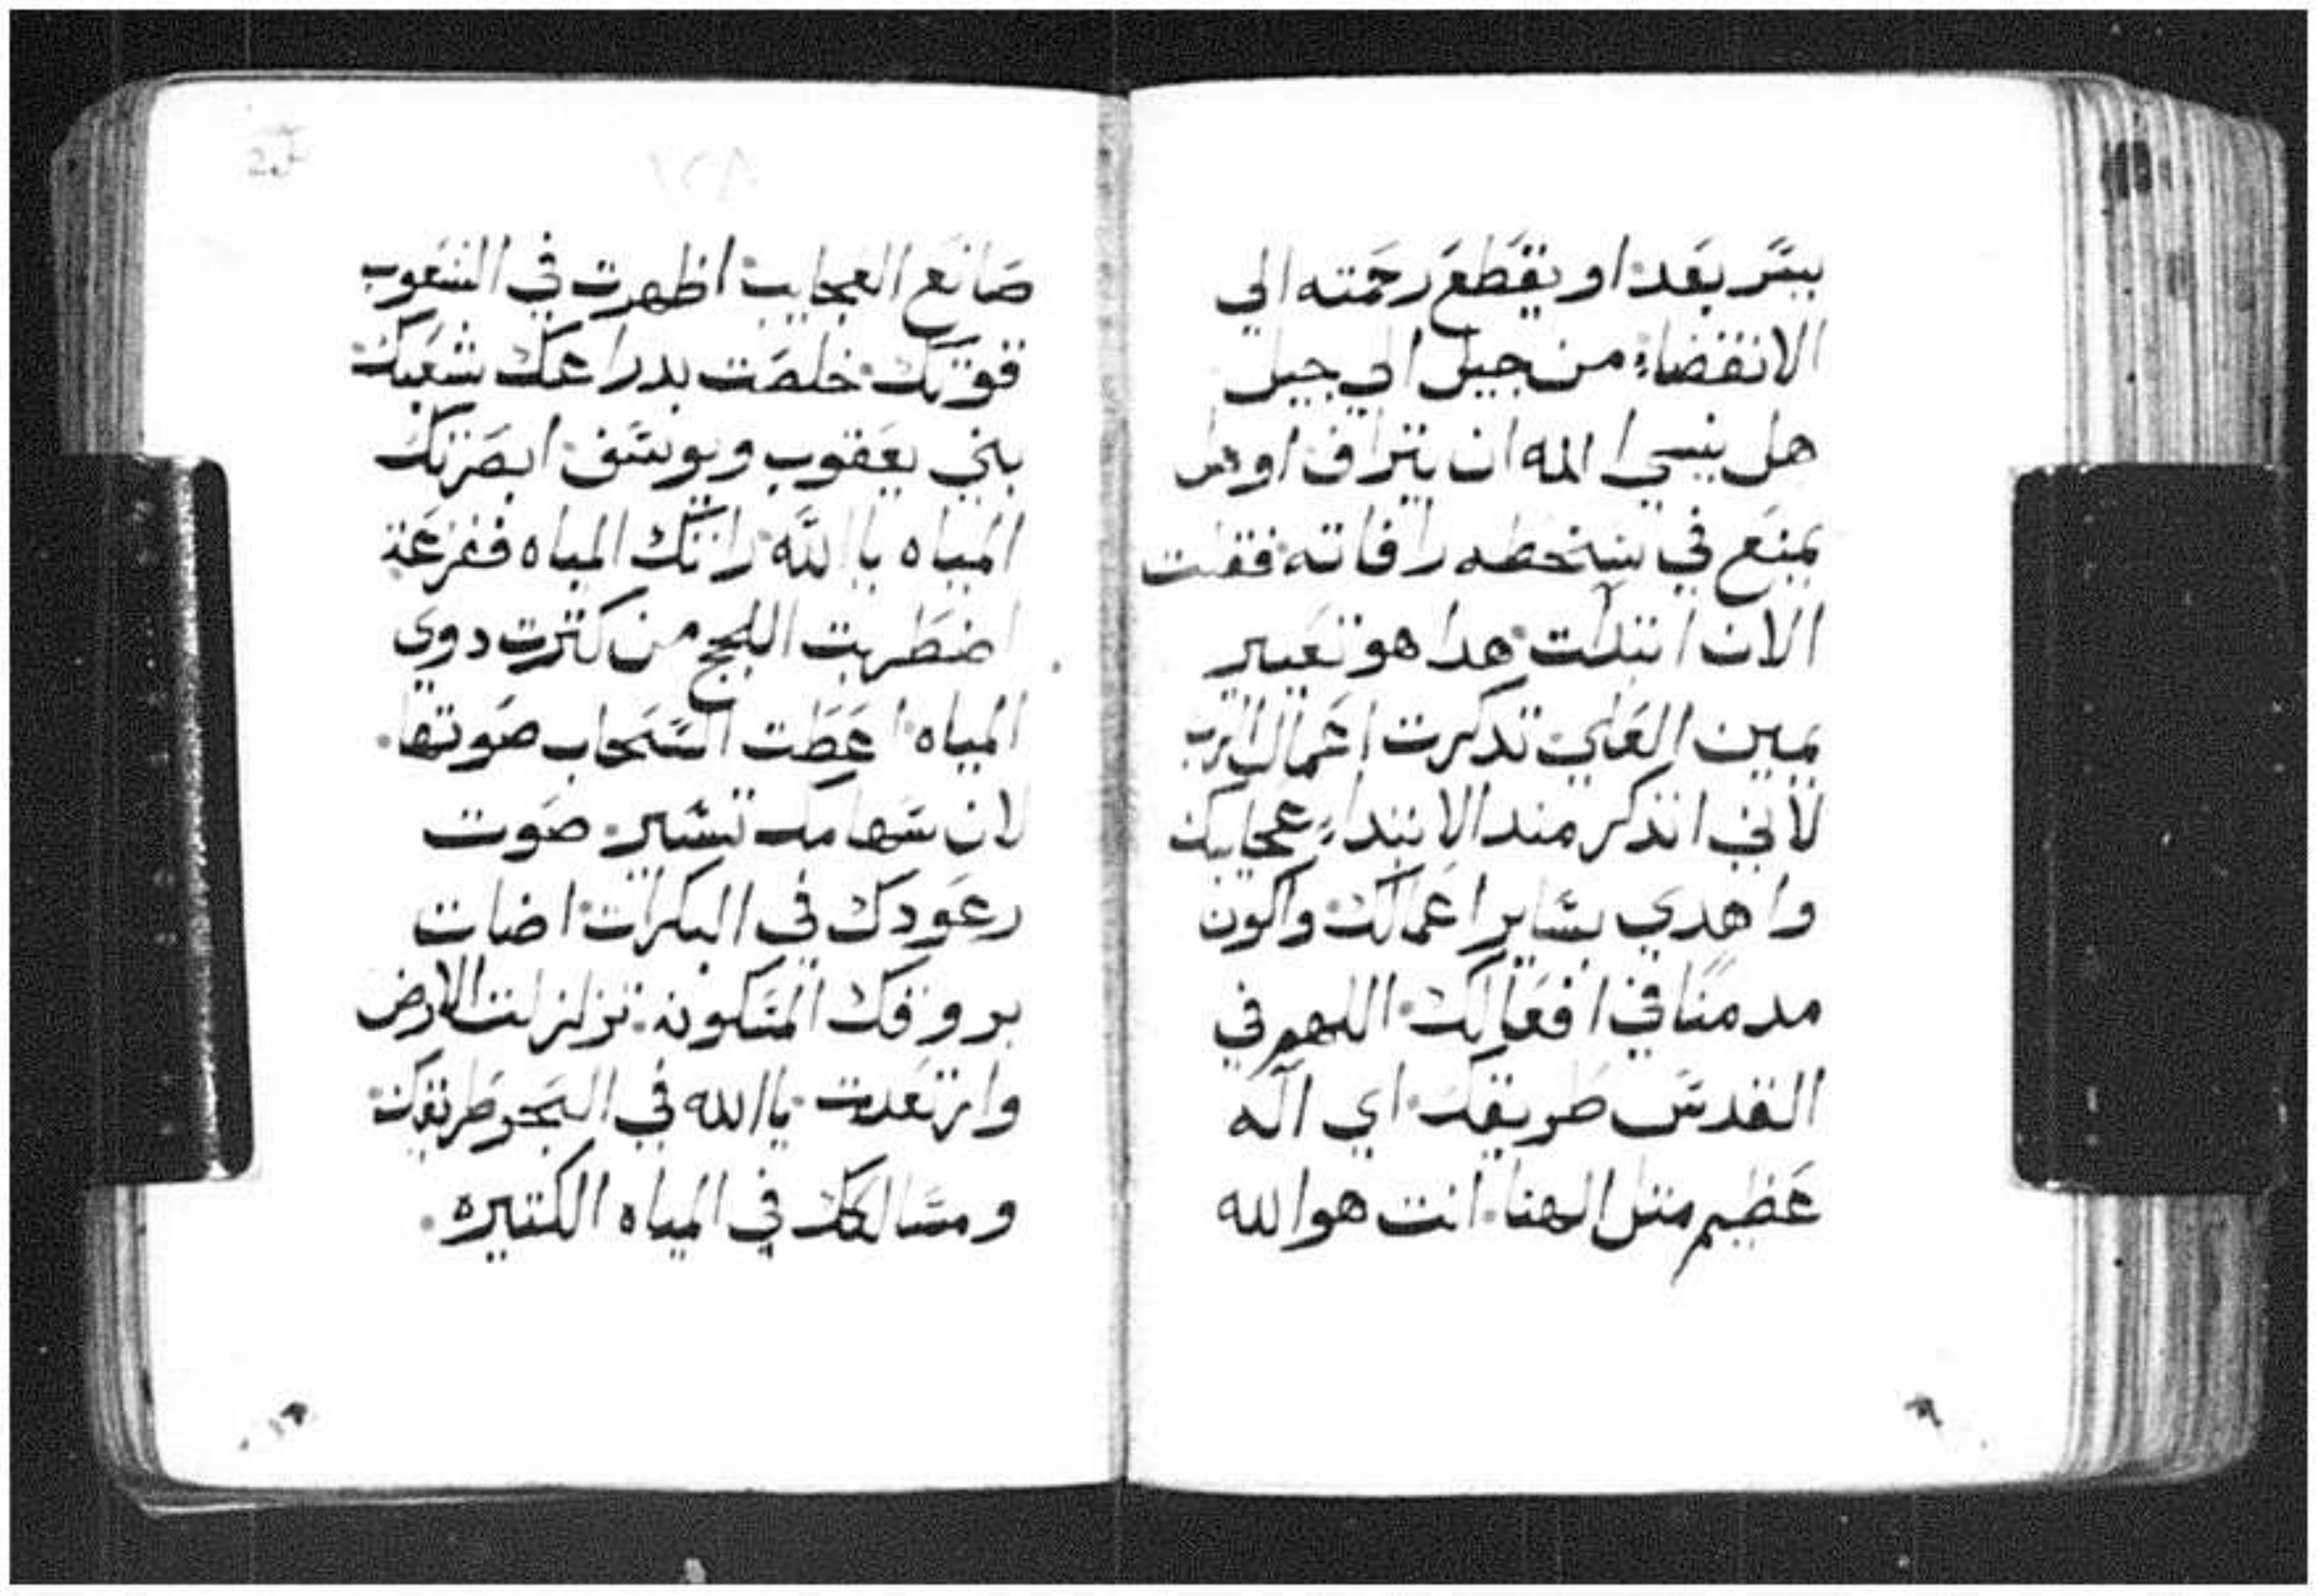 يسر بعد او يقطع رحمته الي
الانقضاء من جيل الي جيل
هل ينسي اله ان يتراف او هل
يمنع في سخطه رافاته فقلت
الان ابتدات هدا هو تغيير
يمين العلي تدكرت اعمال الرب
لاني اتذكر مند الابتداء عجايبك
واهدي بساير اعمالك واكون
مدمنا في افعالك اللهم في
القدس طريقك اي اله
عظيم متل الهنا انت هو الله
صانع العجايب اظهرت في الشعوب
قوتك خلصت بدراعك شعبك
بني يعقوب ويوسف ابصرتك
المياه يا الله راتك المياه ففزعة
اضطربت اللجج من كترت دوي
المياه اعطت السحاب صوتها
لان سهامك تسير صوت
رعودك في البكرات اضات
بروقك المسكونه تزلزلت الارض
وارتعدت يا الله في البحر طريقك
ومسالكك في المياه الكتيره